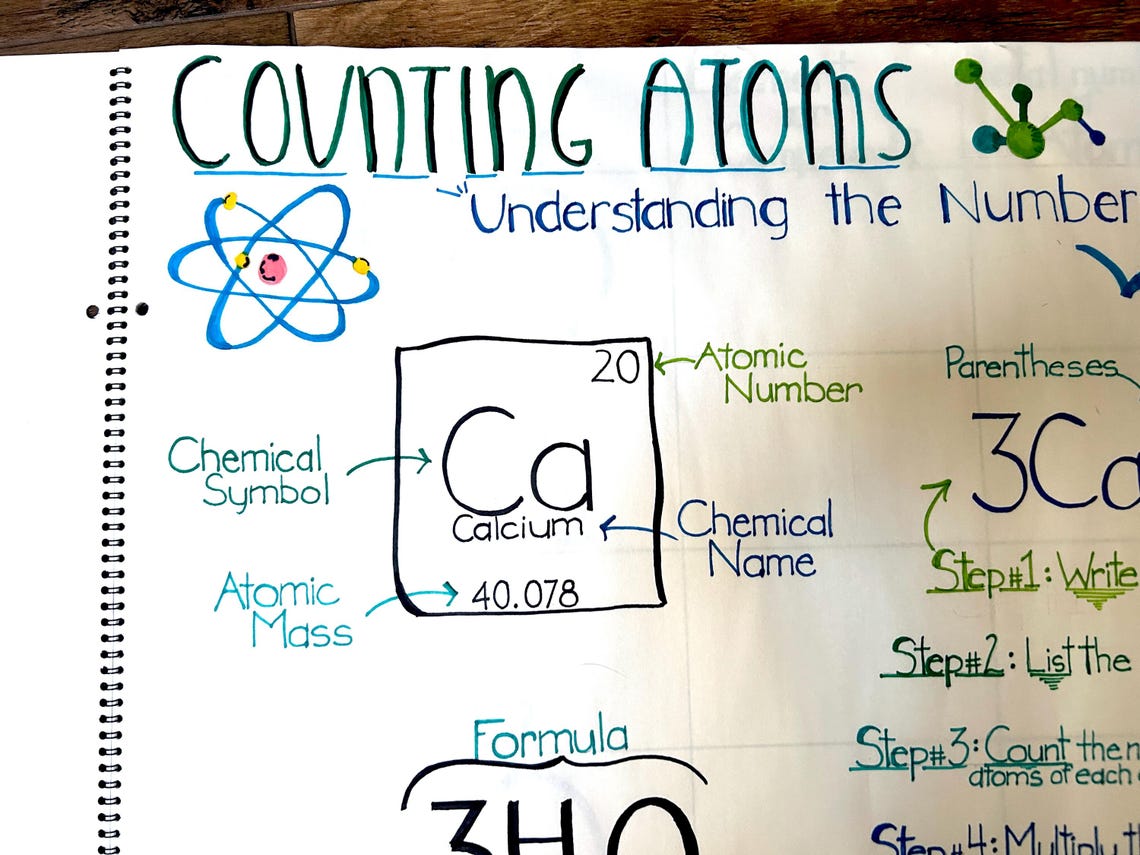 COUNTING ATOMS
Understanding the Number
20
Atomic
Number
Ca
Calcium
40.078
Chemical
Symbol
Chemical
Name
Atomic
Mass
Formula
3H O
Parentheses
3Ca
Step#1: Write
Step#2: List the
Step#3: Count the
atoms of each
Step#4: Multiply